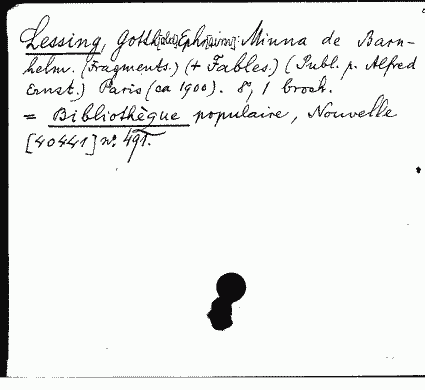 Lessing, Gotth[old] Ephr[aim]: Minna de Barn-
helm. (Fragments.) (+ Fables.) (Publ. p. Alfred
Ernst.) Paris (ca 1900). 8°, 1 broch.
= Bibliothèque populaire, Nouvelle
[40441] n°. 491.